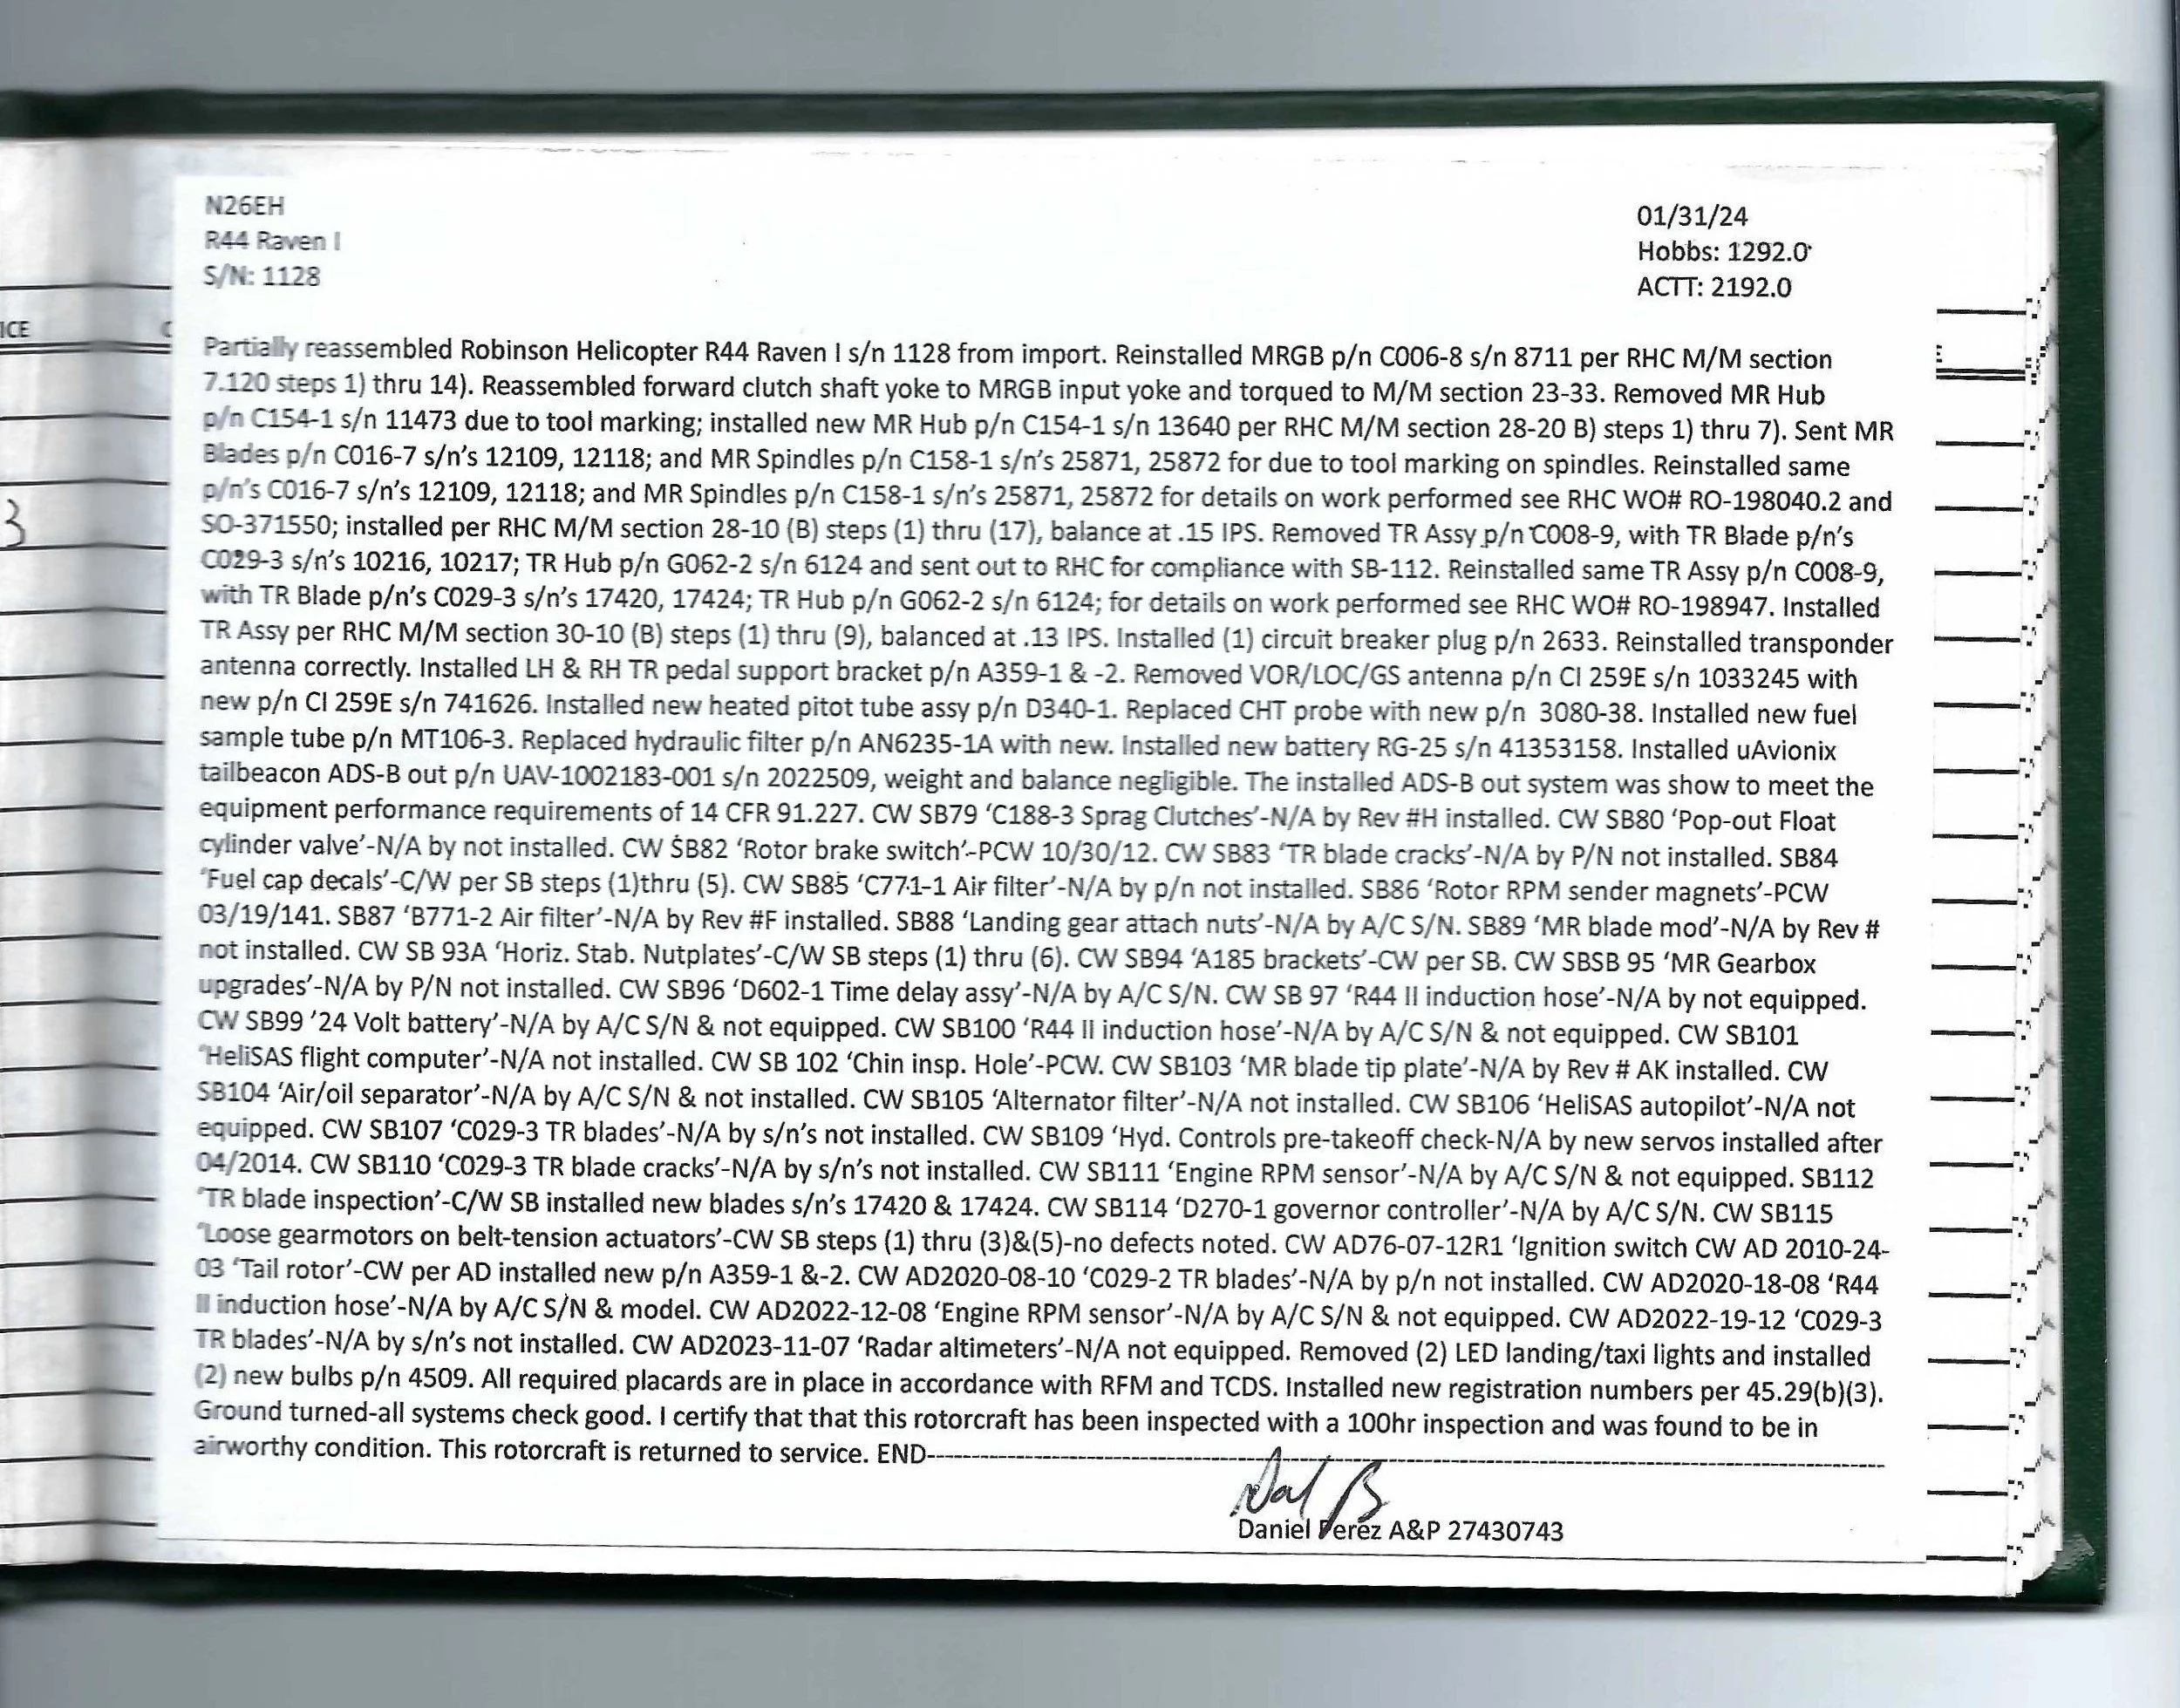 N26EH
R44 Raven I
S/N: 1128
01/31/24
Hobbs: 1292.0
ACTT: 2192.0
ICE
3
Partially reassembled Robinson Helicopter R44 Raven I s/n 1128 from import. Reinstalled MRGB p/n C006-8 s/n 8711 per RHC M/M section
7.120 steps 1) thru 14). Reassembled forward clutch shaft yoke to MRGB input yoke and torqued to M/M section 23-33. Removed MR Hub
p/n C154-1 s/n 11473 due to tool marking; installed new MR Hub p/n C154-1 s/n 13640 per RHC M/M section 28-20 B) steps 1) thru 7). Sent MR
Blades p/n C016-7 s/n's 12109, 12118; and MR Spindles p/n C158-1 s/n's 25871, 25872 for due to tool marking on spindles. Reinstalled same
p/n's C016-7 s/n's 12109, 12118; and MR Spindles p/n C158-1 s/n's 25871, 25872 for details on work performed see RHC WO# RO-198040.2 and
SO-371550; installed per RHC M/M section 28-10 (B) steps (1) thru (17), balance at .15 IPS. Removed TR Assy p/n C008-9, with TR Blade p/n's
C029-3 s/n's 10216, 10217; TR Hub p/n G062-2 s/n 6124 and sent out to RHC for compliance with SB-112. Reinstalled same TR Assy p/n C008-9,
with TR Blade p/n's C029-3 s/n's 17420, 17424; TR Hub p/n G062-2 s/n 6124; for details on work performed see RHC WO# RO-198947. Installed
TR Assy per RHC M/M section 30-10 (B) steps (1) thru (9), balanced at .13 IPS. Installed (1) circuit breaker plug p/n 2633. Reinstalled transponder
antenna correctly. Installed LH & RH TR pedal support bracket p/n A359-1 & -2. Removed VOR/LOC/GS antenna p/n CI 259E s/n 1033245 with
new p/n CI 259E s/n 741626. Installed new heated pitot tube assy p/n D340-1. Replaced CHT probe with new p/n 3080-38. Installed new fuel
sample tube p/n MT106-3. Replaced hydraulic filter p/n AN6235-1A with new. Installed new battery RG-25 s/n 41353158. Installed uAvionix
tailbeacon ADS-B out p/n UAV-1002183-001 s/n 2022509, weight and balance negligible. The installed ADS-B out system was show to meet the
equipment performance requirements of 14 CFR 91.227. CW SB79 'C188-3 Sprag Clutches'-N/A by Rev #H installed. CW SB80 'Pop-out Float
cylinder valve'-N/A by not installed. CW SB82 'Rotor brake switch'-PCW 10/30/12. CW SB83 'TR blade cracks'-N/A by P/N not installed. SB84
'Fuel cap decals'-C/W per SB steps (1)thru (5). CW SB85 'C771-1 Air filter'-N/A by p/n not installed. SB86 'Rotor RPM sender magnets'-PCW
03/19/141. SB87 'B771-2 Air filter'-N/A by Rev #F installed. SB88 'Landing gear attach nuts'-N/A by A/C S/N. SB89 'MR blade mod'-N/A by Rev #
not installed. CW SB 93A 'Horiz. Stab. Nutplates'-C/W SB steps (1) thru (6). CW SB94 'A185 brackets'-CW per SB. CW SBSB 95 'MR Gearbox
upgrades'-N/A by P/N not installed. CW SB96 'D602-1 Time delay assy'-N/A by A/C S/N. CW SB 97 'R44 II induction hose'-N/A by not equipped.
CW SB99 '24 Volt battery'-N/A by A/C S/N & not equipped. CW SB100 'R44 II induction hose'-N/A by A/C S/N & not equipped. CW SB101
'HeliSAS flight computer'-N/A not installed. CW SB 102 'Chin insp. Hole'-PCW. CW SB103 'MR blade tip plate'-N/A by Rev # AK installed. CW
SB104 'Air/oil separator'-N/A by A/C S/N & not installed. CW SB105 'Alternator filter'-N/A not installed. CW SB106 'HeliSAS autopilot'-N/A not
equipped. CW SB107 'C029-3 TR blades'-N/A by s/n's not installed. CW SB109 'Hyd. Controls pre-takeoff check-N/A by new servos installed after
04/2014. CW SB110 'C029-3 TR blade cracks'-N/A by s/n's not installed. CW SB111 'Engine RPM sensor'-N/A by A/C S/N & not equipped. SB112
'TR blade inspection'-C/W SB installed new blades s/n's 17420 & 17424. CW SB114 'D270-1 governor controller'-N/A by A/C S/N. CW SB115
'Loose gearmotors on belt-tension actuators'-CW SB steps (1) thru (3)&(5)-no defects noted. CW AD76-07-12R1 'Ignition switch CW AD 2010-24-
03 'Tail rotor'-CW per AD installed new p/n A359-1 &-2. CW AD2020-08-10 'C029-2 TR blades'-N/A by p/n not installed. CW AD2020-18-08 'R44
II induction hose'-N/A by A/C S/N & model. CW AD2022-12-08 'Engine RPM sensor'-N/A by A/C S/N & not equipped. CW AD2022-19-12 'C029-3
TR blades'-N/A by s/n's not installed. CW AD2023-11-07 'Radar altimeters'-N/A not equipped. Removed (2) LED landing/taxi lights and installed
(2) new bulbs p/n 4509. All required placards are in place in accordance with RFM and TCDS. Installed new registration numbers per 45.29(b)(3).
Ground turned-all systems check good. I certify that that this rotorcraft has been inspected with a 100hr inspection and was found to be in
airworthy condition. This rotorcraft is returned to service. END----------
Daniel Perez A&P 27430743